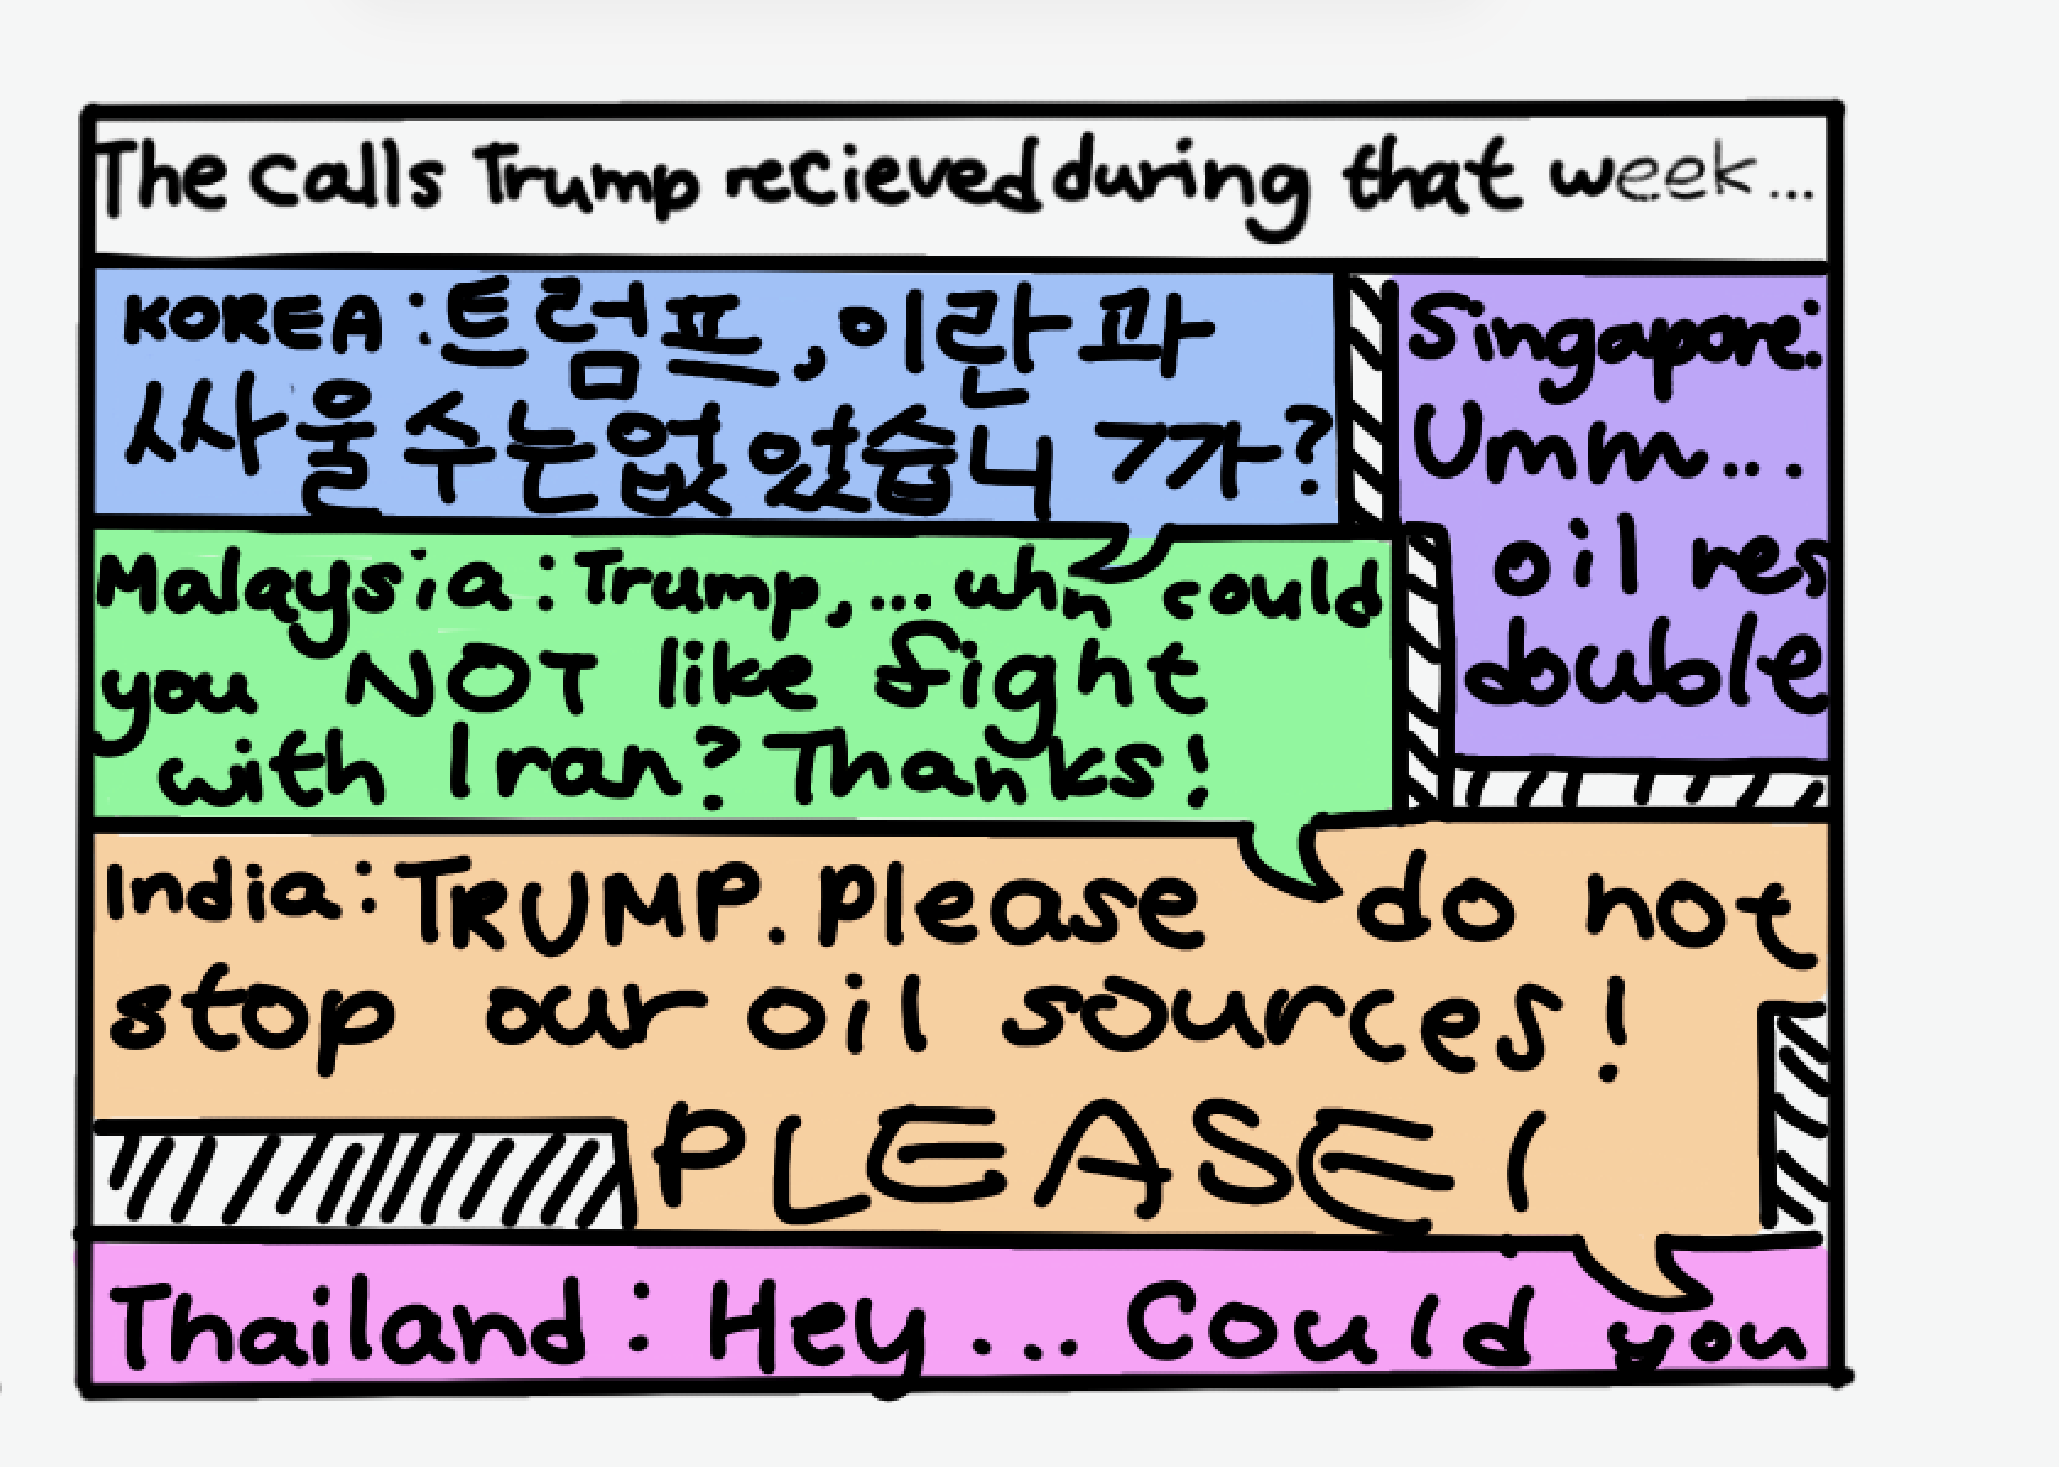 The calls Trump recieved during that week...
KOREA:트럼프,이란과
싸울수는없었습니까?
Singapore:
Umm...
oil res
double
Malaysia:Trump,...uhh could
you NOT like fight
with Iran? Thanks!
India:TRUMP. Please do not
stop our oil sources!
PLEASE!
Thailand: Hey... Could you